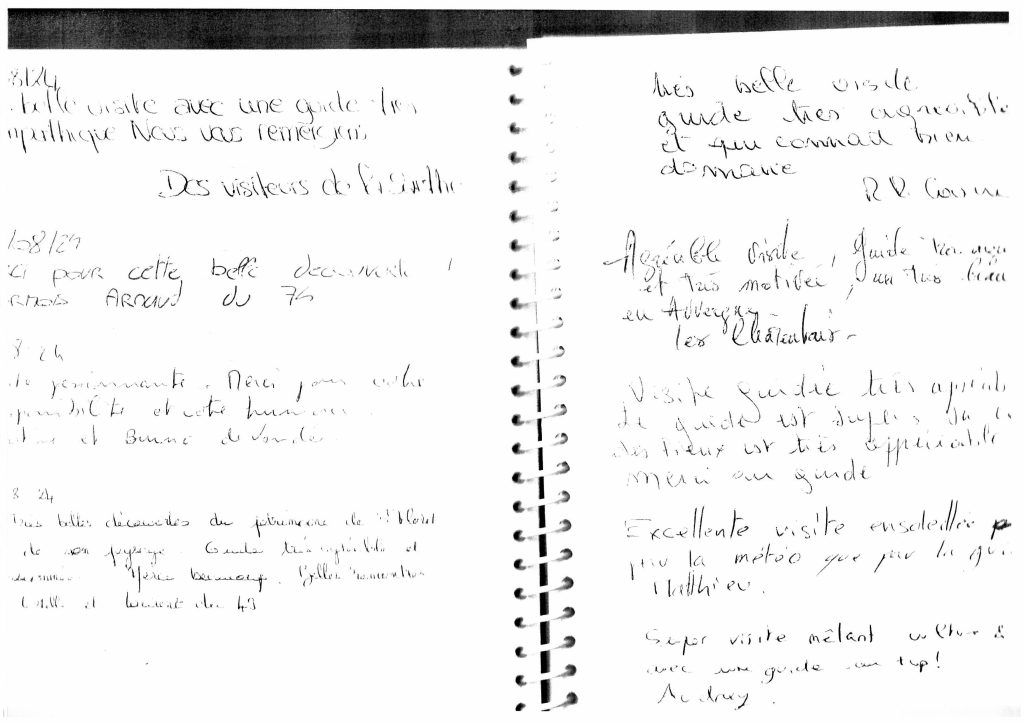 8/24
belle visite avec une guide très
mpathique Nous vous remercions
Des visiteurs de la Sarthe
/08/24
ci pour cette belle découverte !
Arnaud du 74
8 24
passionnante. Merci pour votre
et votre humour.
et Bruno de Vendée
8 24
Très belles découvertes du patrimoine de
de son paysage. Guide très agréable et
Merci beaucoup. Belles
et Laurent du 49
très belle visite
guide très agréable
et qui connait bien
domaine
Agréable visite, Guide très
et très motivée, un très beau
en Auvergne
Les
Visite guidée très appréci
Le guide est super, sa
des lieux est très appréciable
Merci au guide
Excellente visite ensoleillée p
par la météo que par la gui
Matthieu.
Super visite mêlant culture &
avec une guide au top!
Audrey.